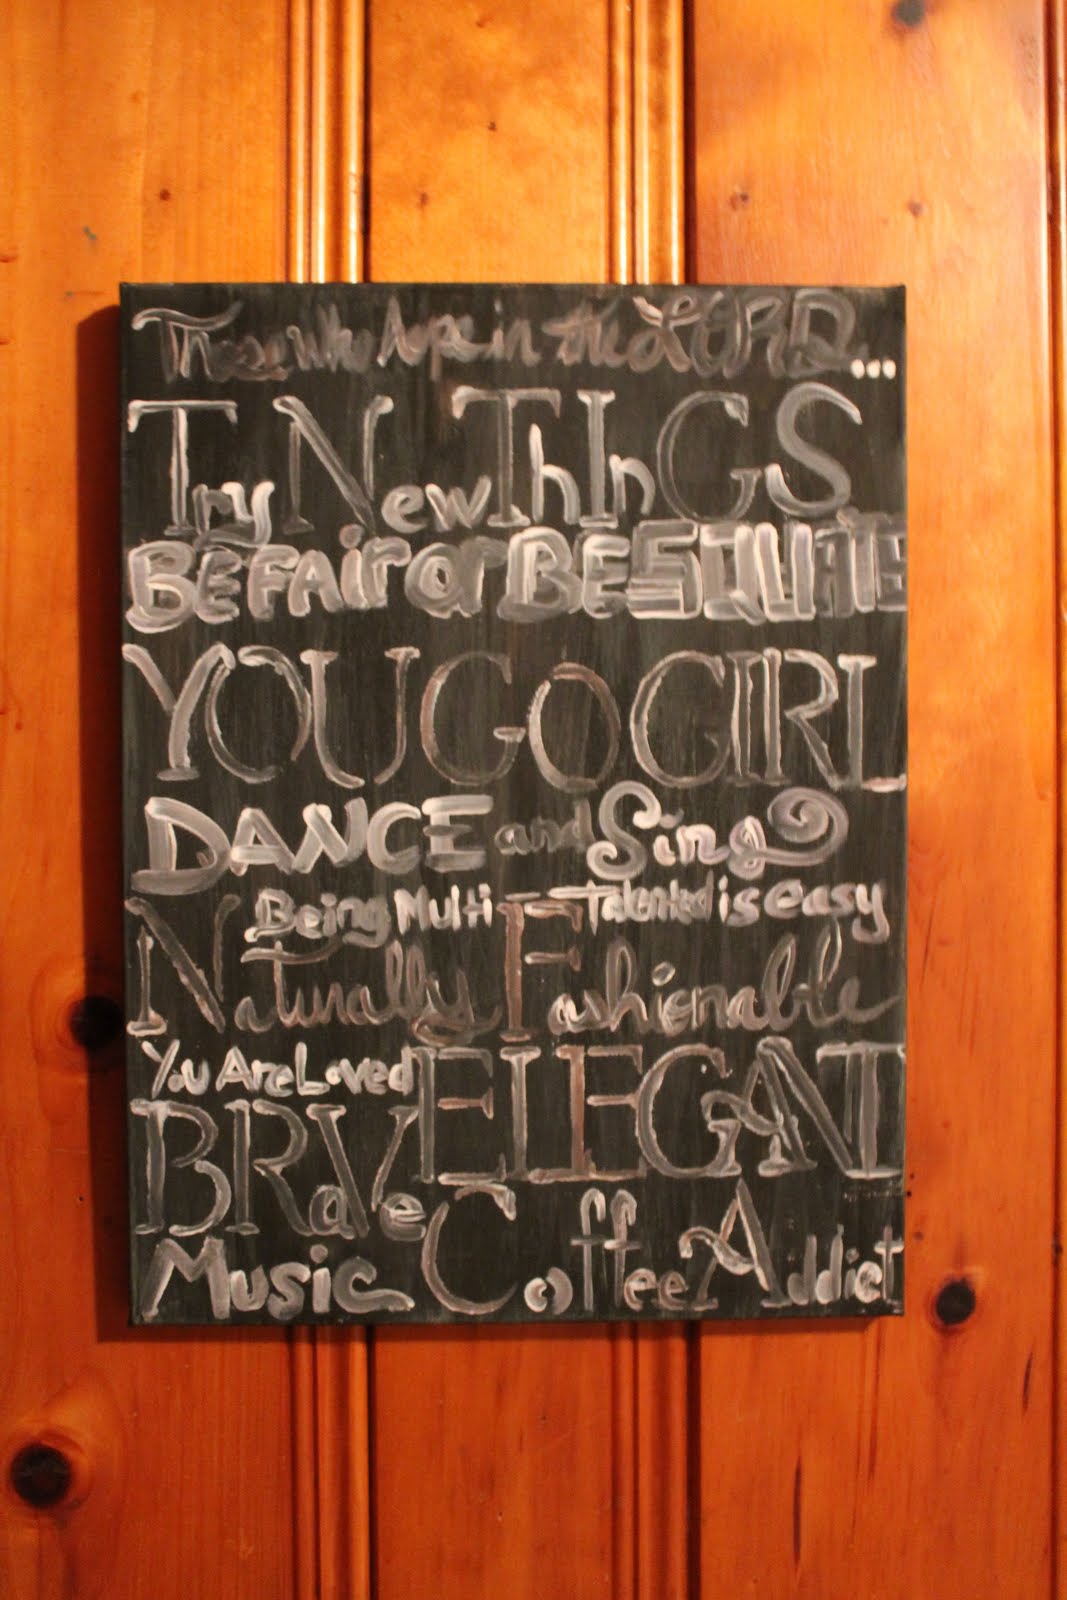 Those who hope in the LORD...
Try New ThInGS
BE FAir or BE SQUARE
YOU GO GIRL
DANCE and Sing
Being Multi-Talented is easy
Naturally Fashionable
You Are Loved ELEGANT
BRaVe
Music Coffee Addict